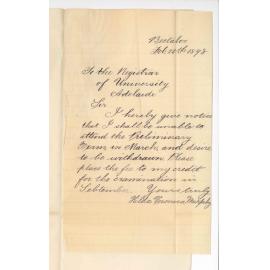 Beetaloo
Feb 20th 1898
To the Registrar
of University
Adelaide
Sir
I hereby give notice
that I shall be unable to
attend the Preliminary
Exam in March, and desire
to be withdrawn. Please
place the fee to my credit
for the examination in
September. Yours truly
Hilda Murphy